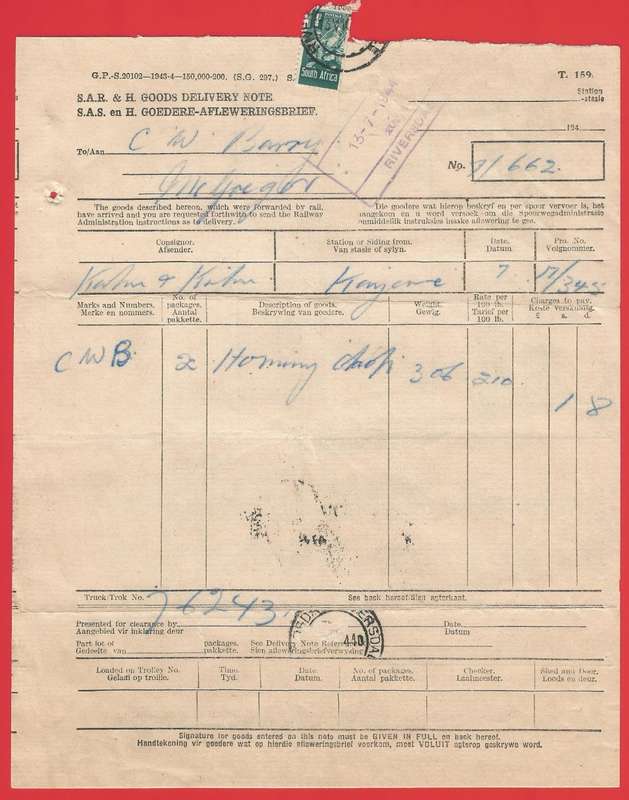 South Africa
G.P.-S.20102—1943-4—150,000-200. (S.G. 297.) S.
T. 159.
S.A.R. & H. GOODS DELIVERY NOTE
S.A.S. en H. GOEDERE-AFLEWERINGSBRIEF.
Station
-stasie
13-7-1944
RIVERSDAL
194
To/Aan C W Barry
No. 7/662
McGregor
The goods described hereon, which were forwarded by rail, have arrived and you are requested forthwith to send the Railway Administration instructions as to delivery.
Die goedere wat hierop beskryf en per spoor vervoer is, het aangekom en u word versoek om die Spoorwegadministrasie onmiddellik instruksies insake aflewering te gee.
Consignor. Station or Siding from. Date. Pro. No.
Afsender. Van stasie of sylyn. Datum. Volgnommer.
Kahn & Kahn 7 17/345
Marks and Numbers. No. of packages. Description of goods. Weight. Rate per 100 lb. Charges to pay.
Merke en nommers. Aantal pakkette. Beskrywing van goedere. Gewig. Tarief per 100 lb. Koste verskuldig.
£ s. d.
C W B. 2 306 210
1 8
Truck/Trok No. 76243 See back hereof/Sien agterkant.
Presented for clearance by Date
Aangebied vir inklaring deur Datum
RIVERSDAL
Part lot of packages. See Delivery Note Reference
Gedeelte van pakkette. Sien afleweringsbriefverwysing
Loaded on Trolley No. Time. Date. No. of packages. Checker. Shed and Door.
Gelaai op trollie. Tyd. Datum. Aantal pakkette. Laaimeester. Loods en deur.
Signature for goods entered on this note must be GIVEN IN FULL on back hereof.
Handtekening vir goedere wat op hierdie afleweringsbrief voorkom, moet VOLUIT agterop geskrywe word.